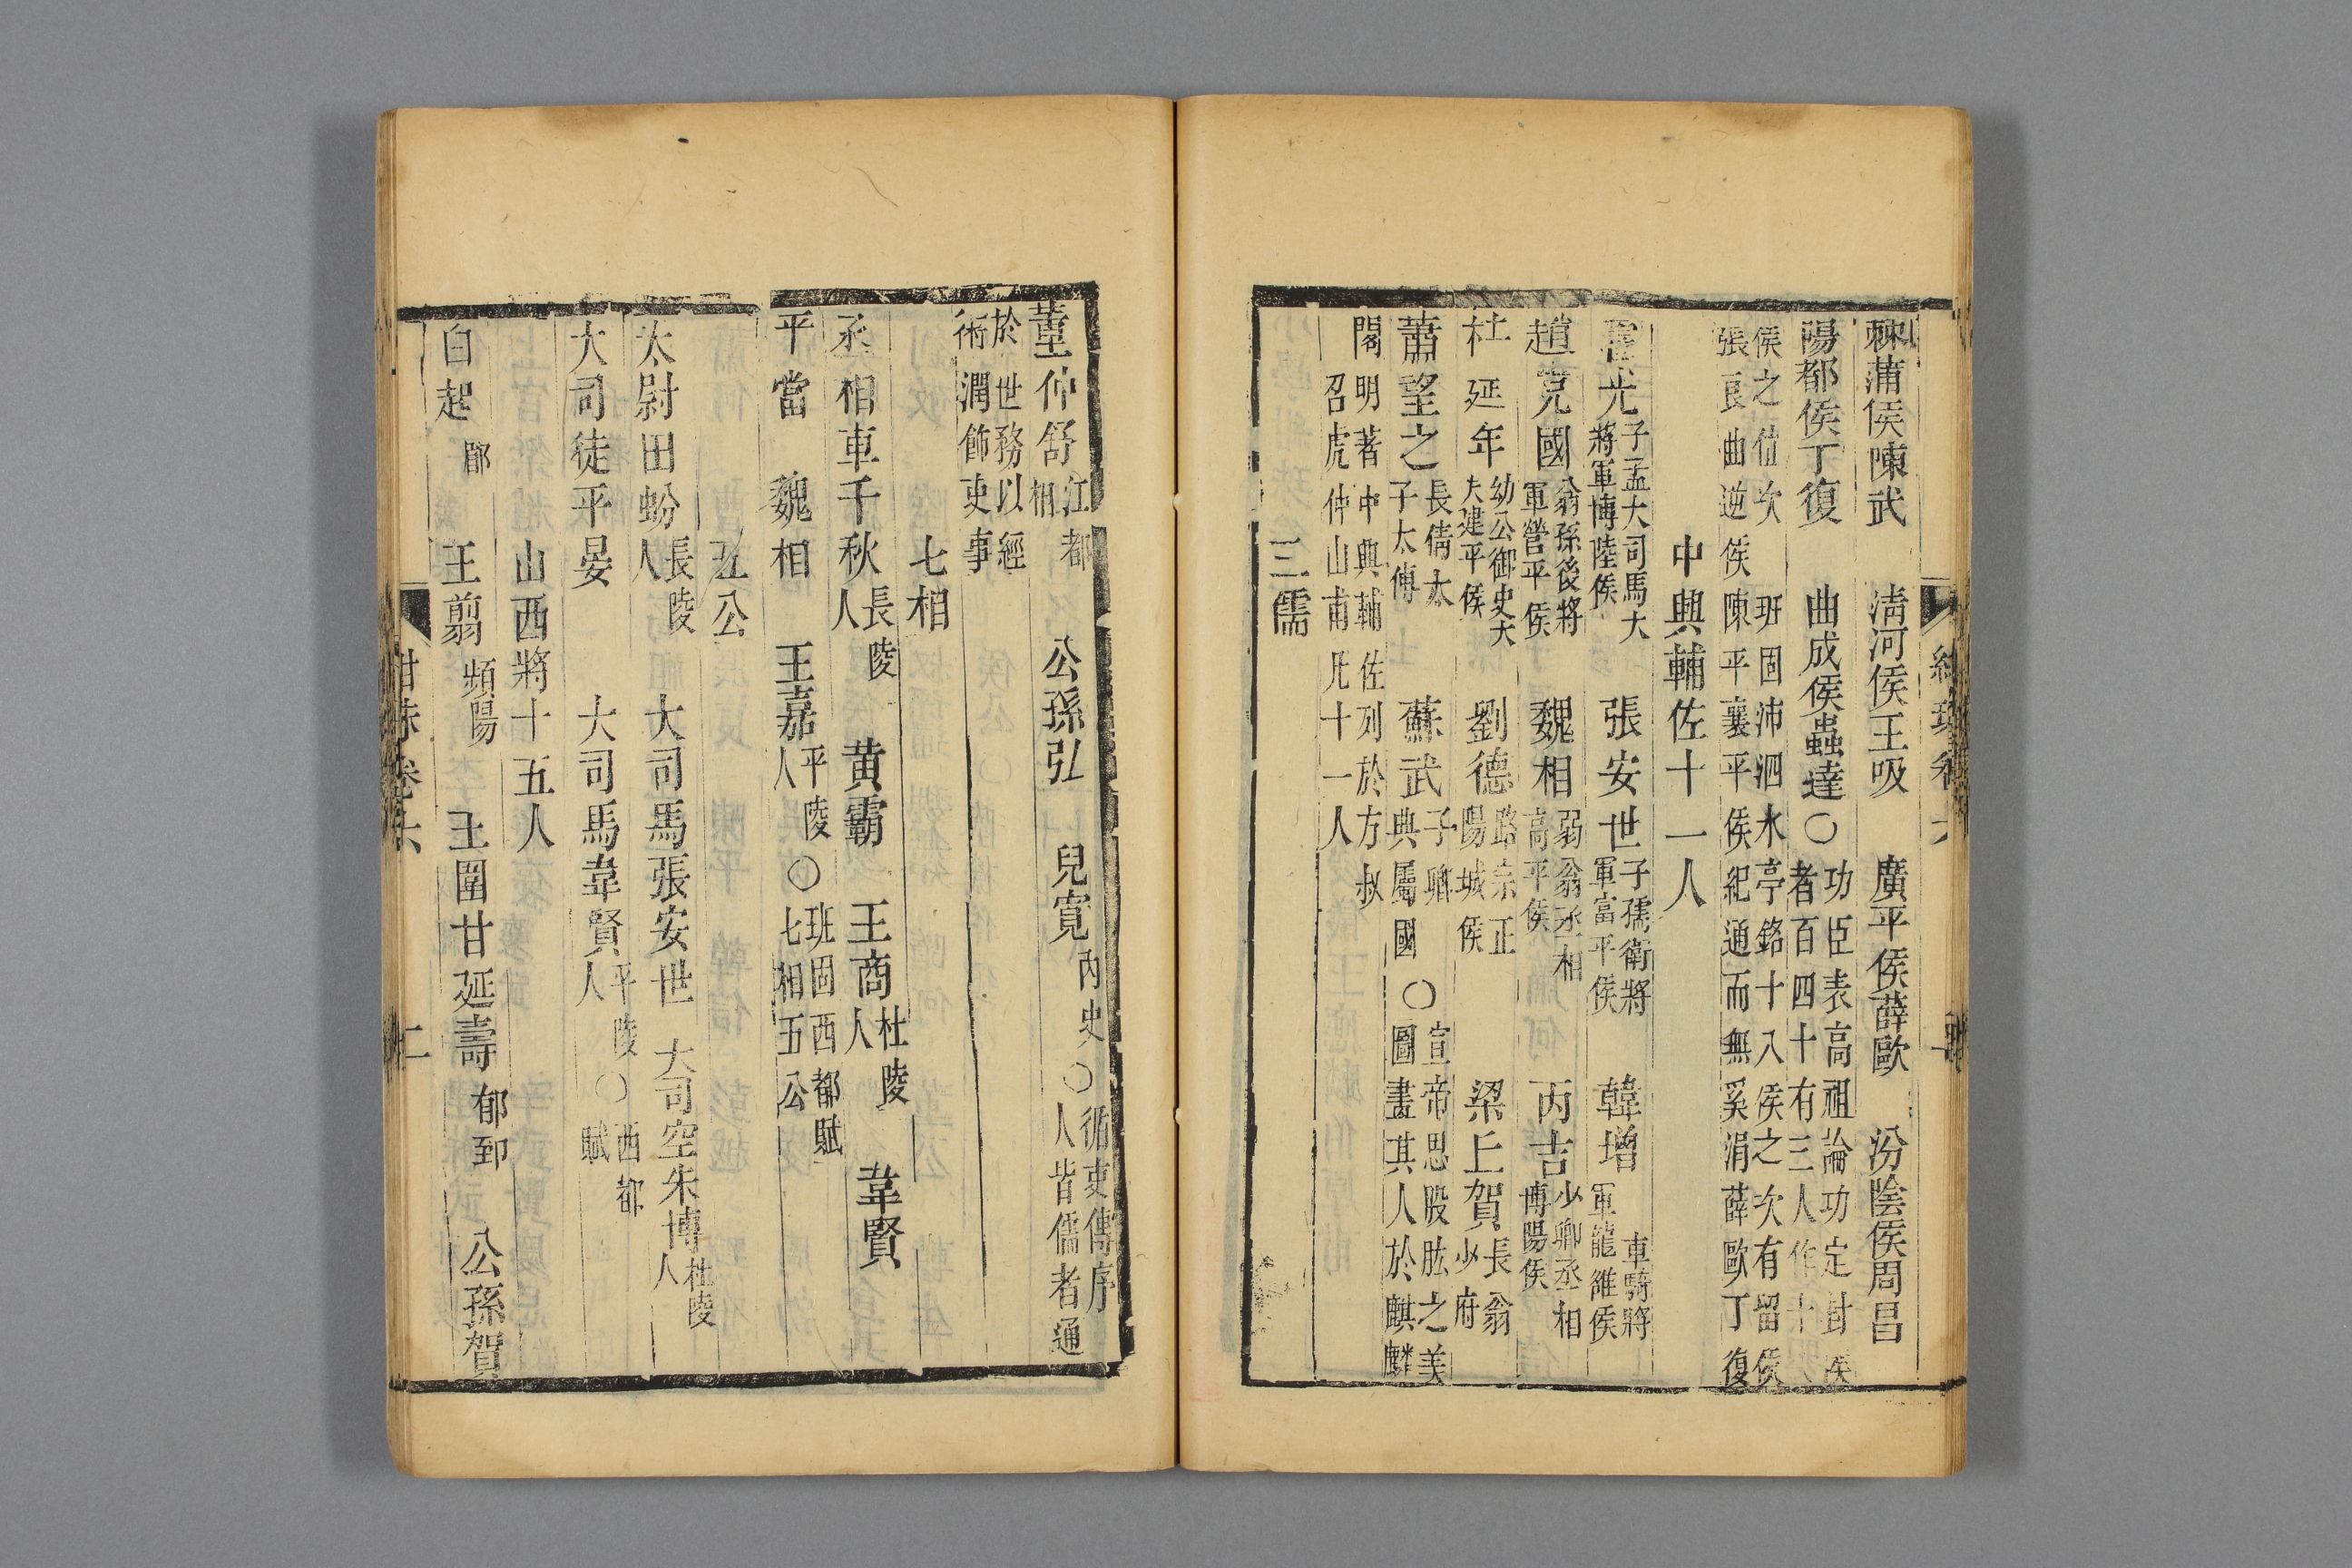 棘蒲侯陳武　清河侯王吸　廣平侯薛歐　汾陰侯周昌
陽都侯丁復　曲成侯蟲達○功臣表高祖論功定封侯
者百四十有三人作十八
侯之位次　班固沛泗水亭銘十八侯之次有留侯
張良曲逆侯陳平襄平侯紀通而無奚涓薛歐丁復
中興輔佐十一人
霍光子孟大司馬大將軍博陸侯　張安世子孺衛將軍富平侯　韓增車騎將軍龍雒侯
趙充國翁孫後將軍營平侯　魏相弱翁丞相高平侯　丙吉少卿丞相博陽侯
杜延年幼公御史大夫建平侯　劉德路宗正陽城侯　梁丘賀長翁少府
蕭望之長倩太子太傅　蘇武子卿典屬國○宣帝思股肱之美圖畫其人於麒麟
閣明著中興輔佐列於方叔
召虎仲山甫凡十一人
三儒
董仲舒江都相　公孫弘　兒寬內史○循吏傳序人皆儒者通
於世務以經
術潤飾吏事
七相
丞相車千秋長陵人　黄霸　王商杜陵人　韋賢
平當　魏相　王嘉平陵人○班固西都賦七相五公
五公
太尉田蚡長陵人　大司馬張安世　大司空朱博杜陵人
大司徒平晏　大司馬韋賢平陵人○西都賦
山西將十五人
白起郿　王翦頻陽　王圍甘延壽郁郅　公孫賀